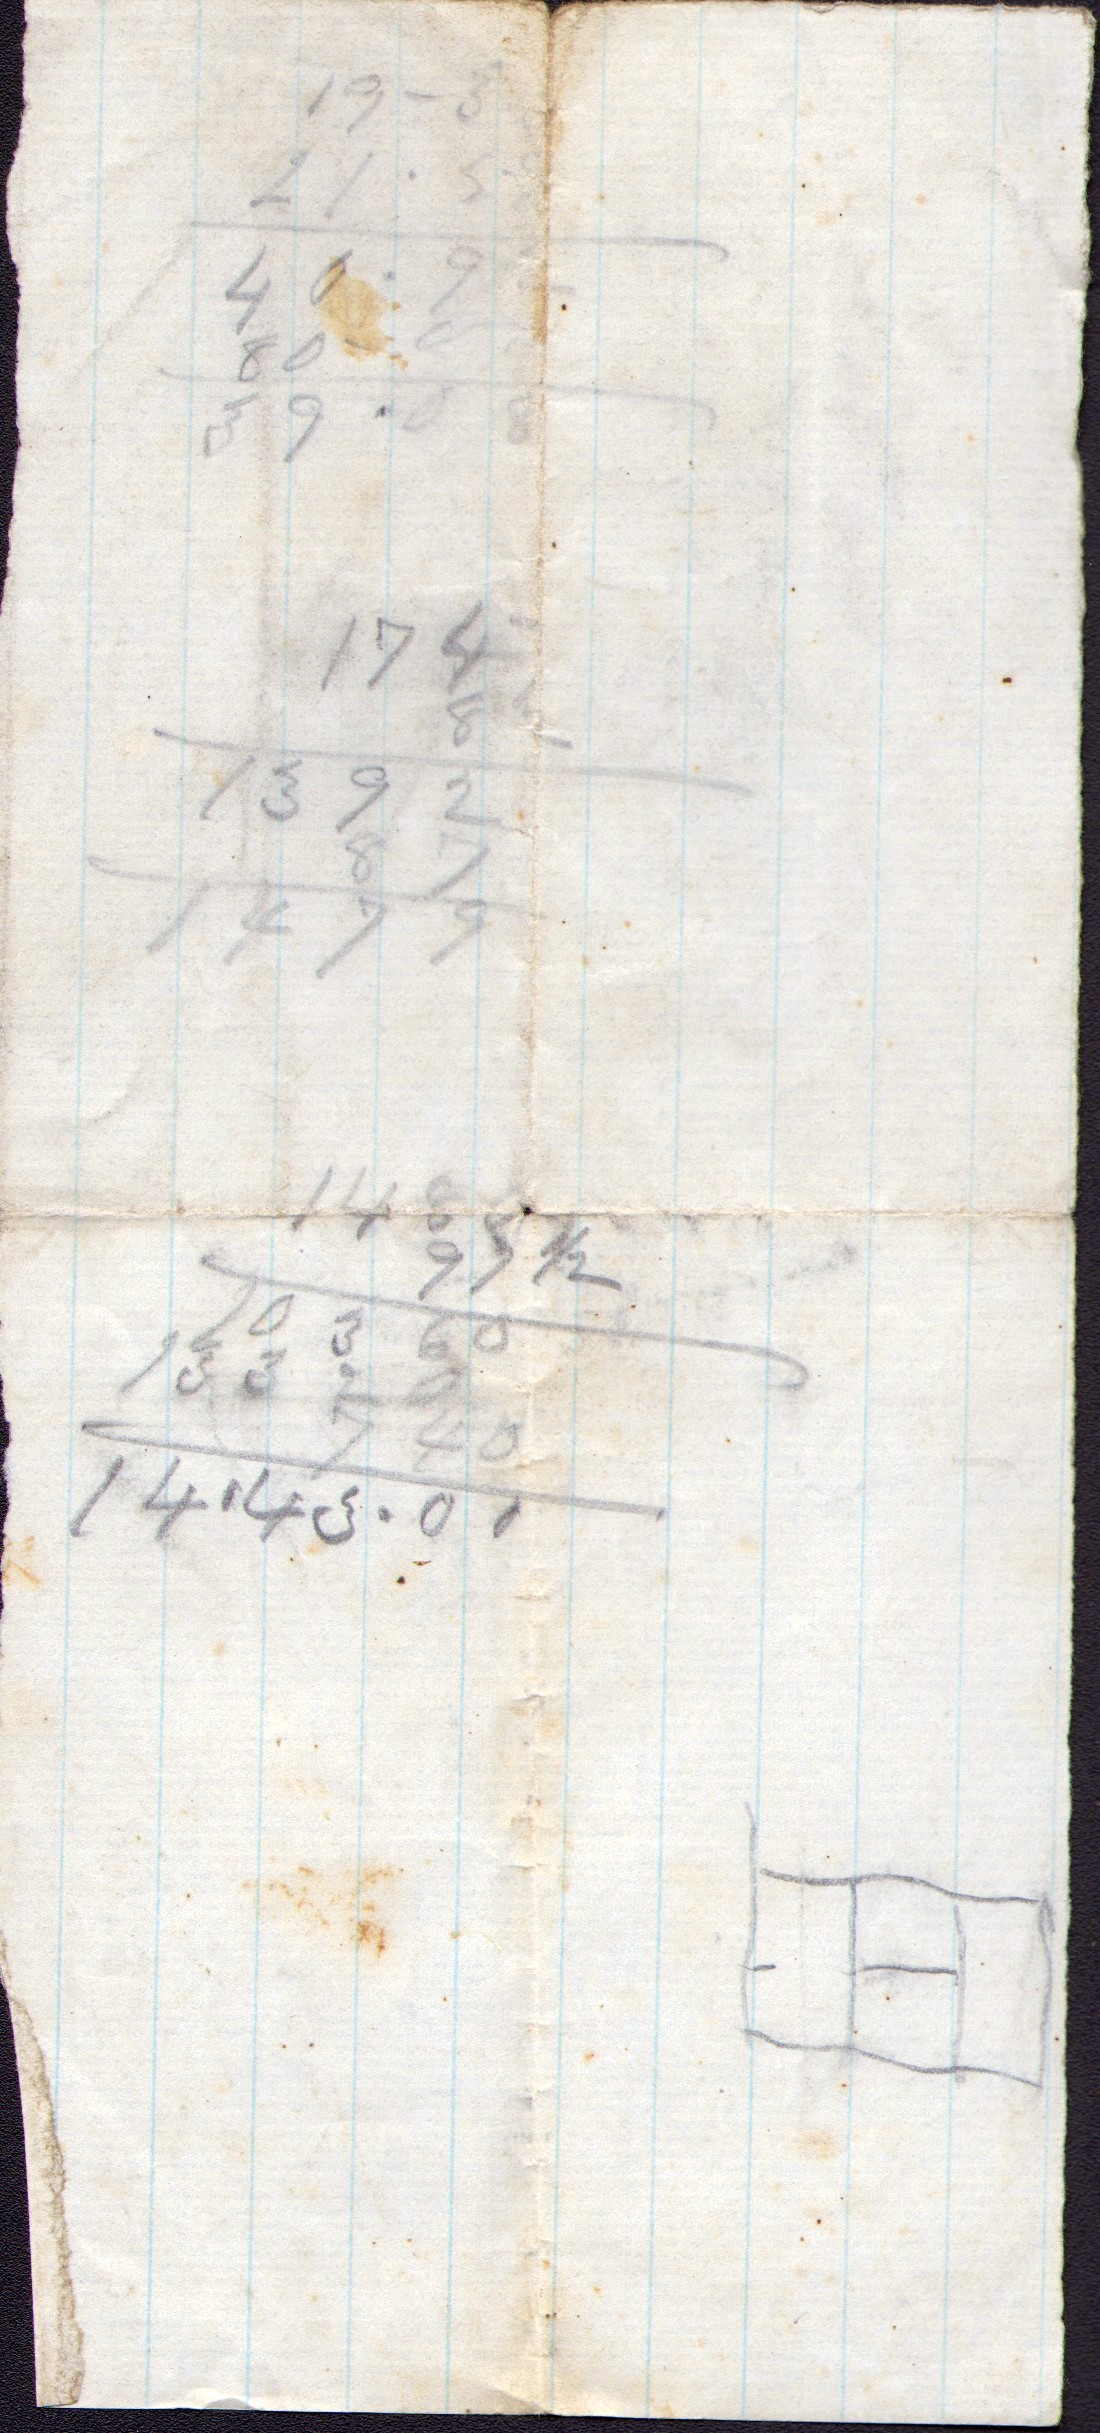 19-3
21.5
40.9
80
39.0 8
174
8 ½
1392
87
1479
148
95 ½
10360
1332 0
740
1414 3.0